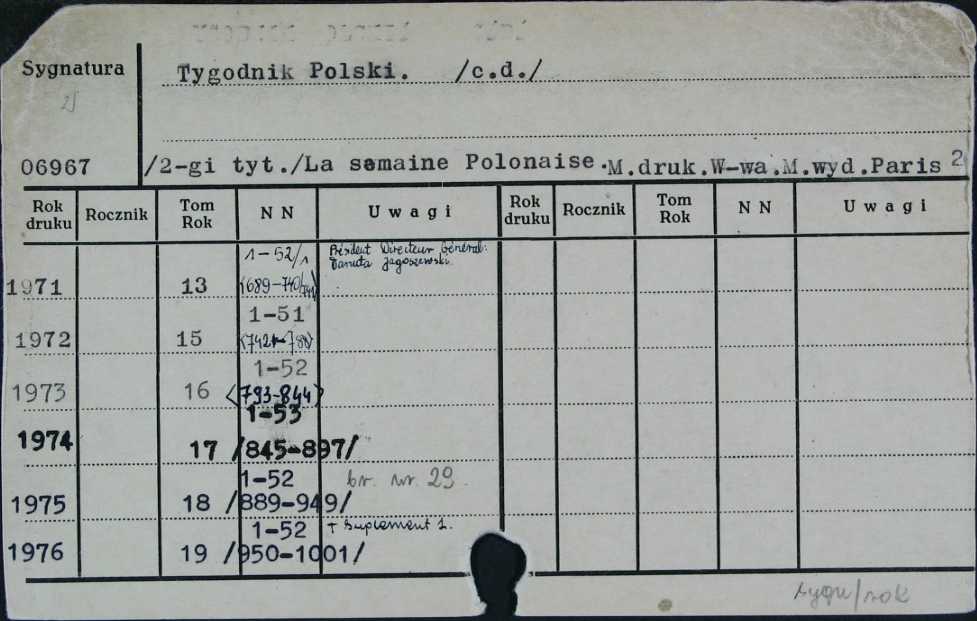 Sygnatura Tygodnik Polski. /c.d./
06967 /2-gi tyt./La semaine Polonaise.M.druk.W-wa.M.wyd.Paris 2
Rok druku Rocznik Tom Rok N N Uwagi Rok druku Rocznik Tom Rok N N Uwagi
1-52/1 Président Directeur Général:
Danuta Jagoszewski.
1971 13 (689-740/741)
1-51
1972 15
1-52
1973 16 <793-844>
1-53
1974 17 /845-897/
1-52 br. nr. 29.
1975 18 /889-949/
1-52 + Suplement 1.
1976 19 /950-1001/
sygn/rok